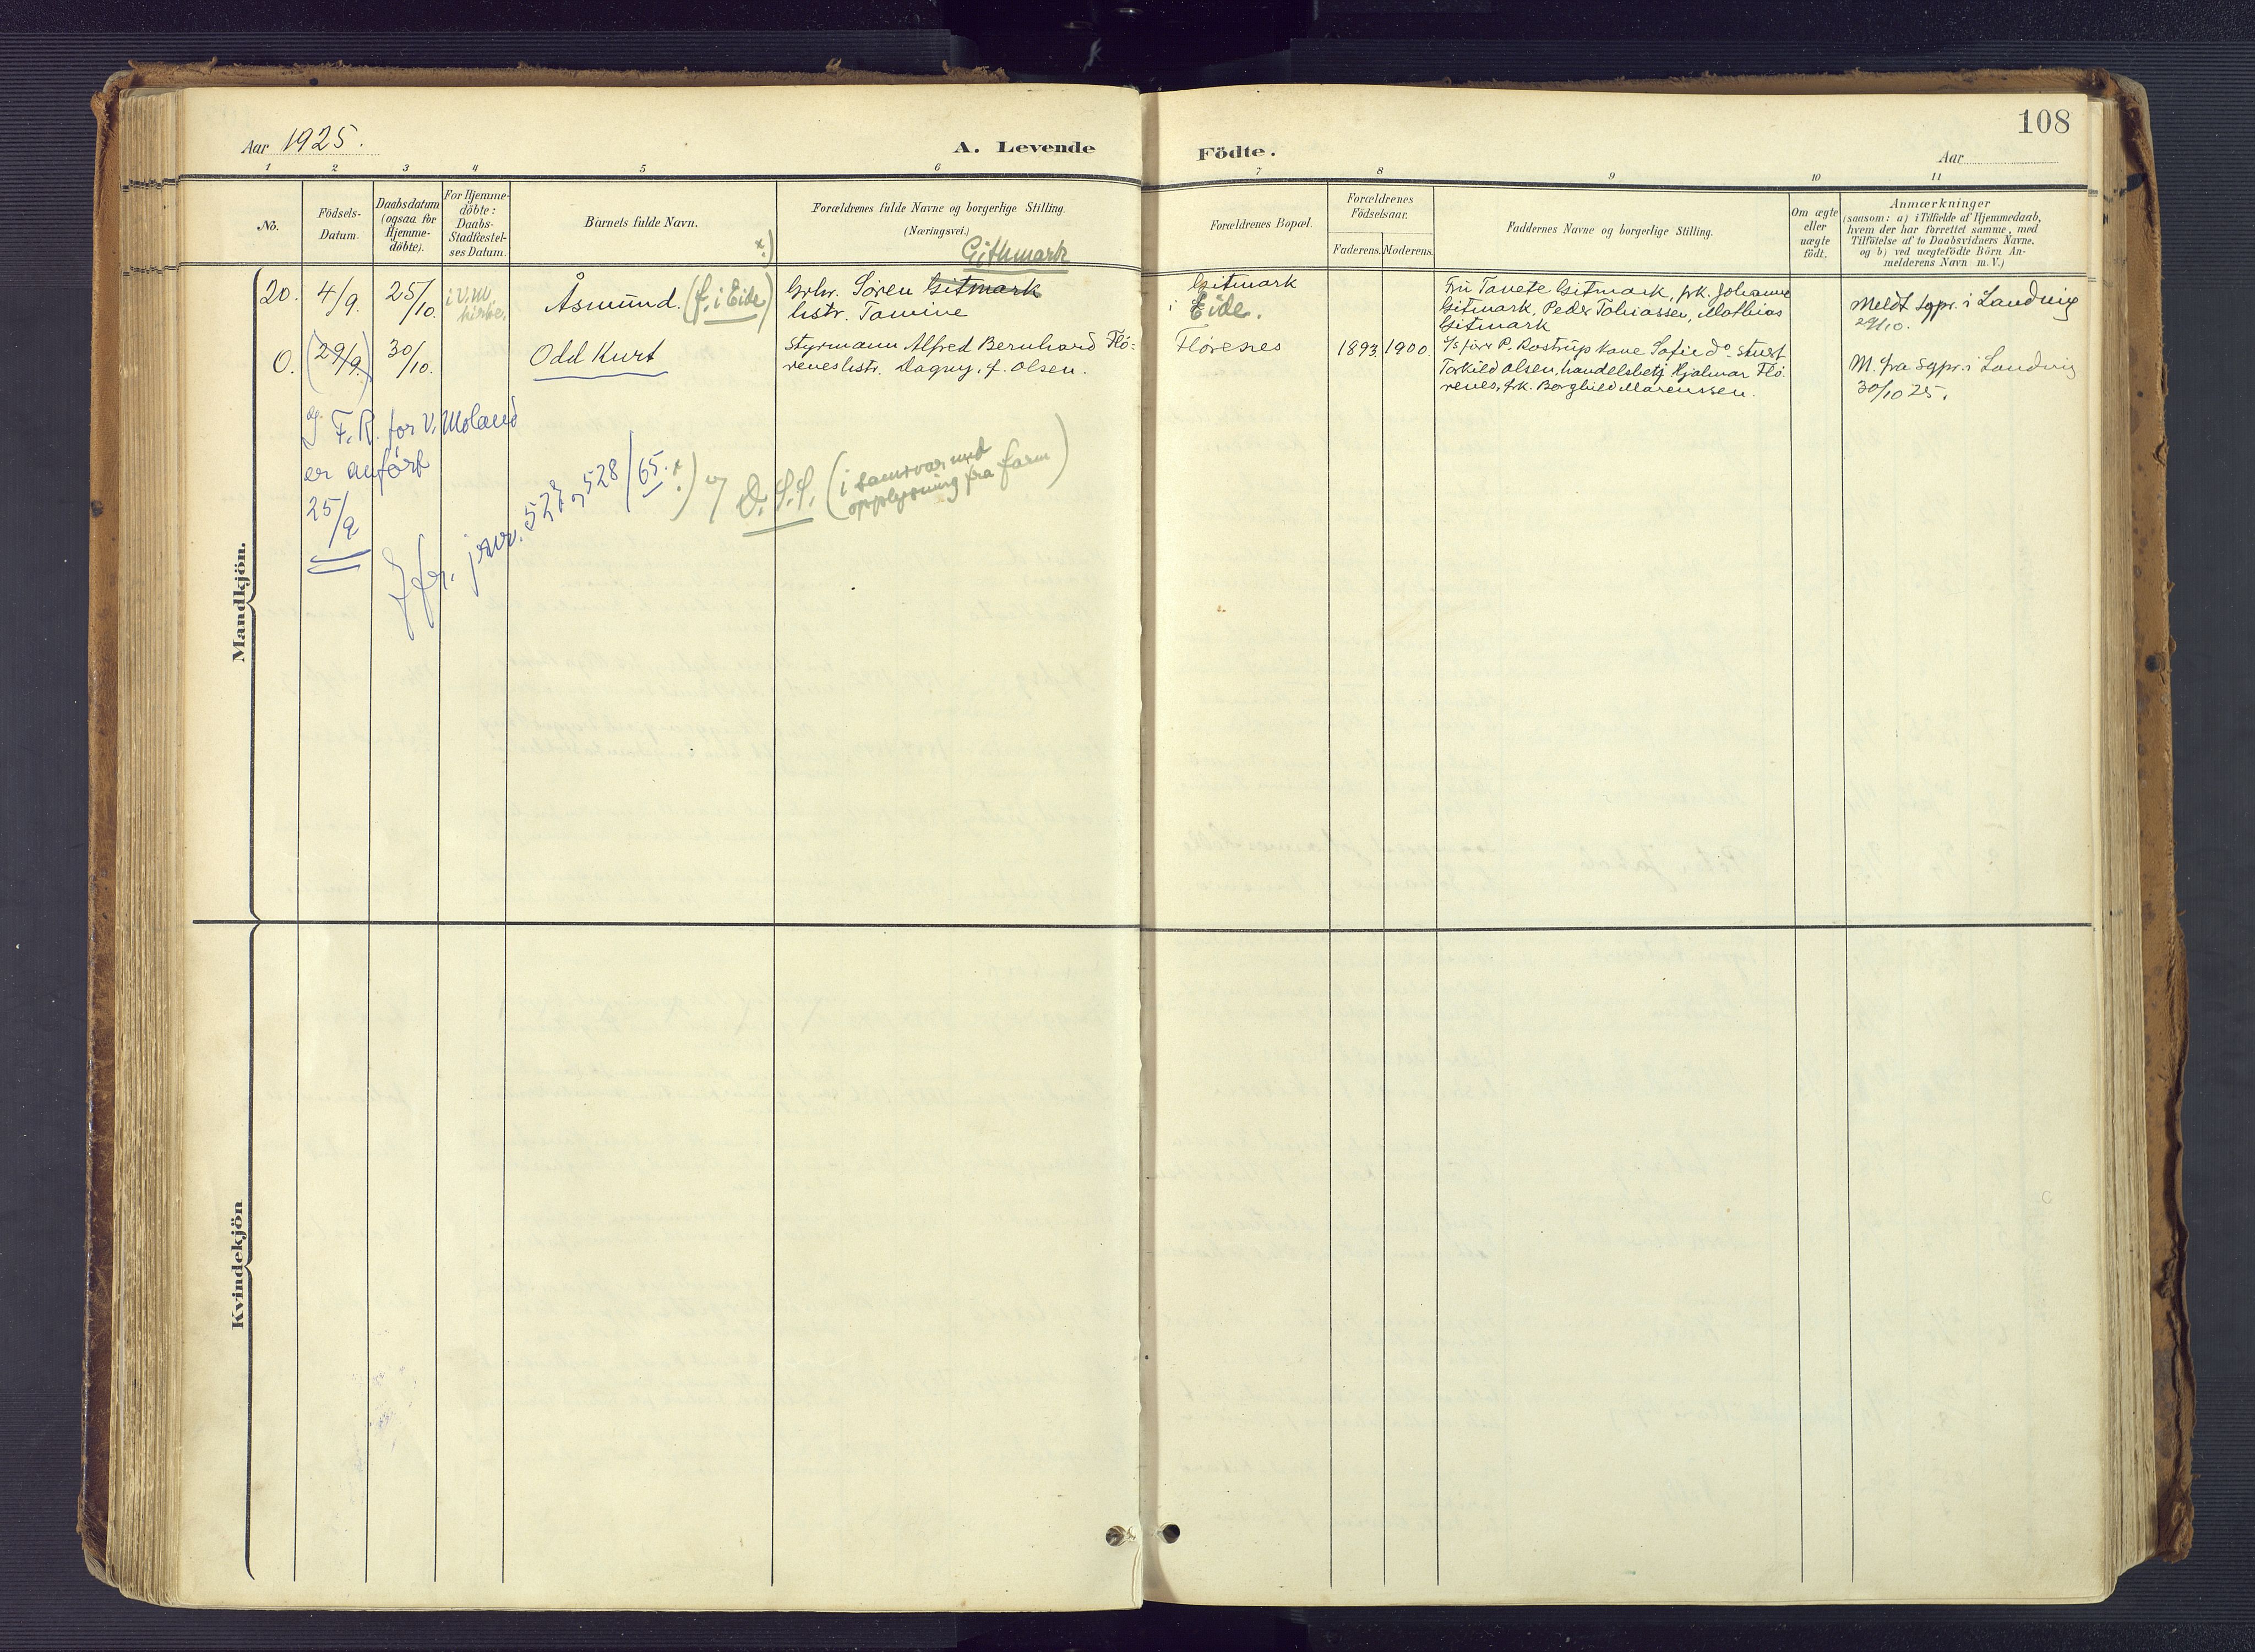 108
Aar 1925.
A. Levende
Födte.
Aar
1 2 3 4 5 6 7 8 9 10 11
No.
Födsels-
Datum.
Daabsdatum
(ogsaa for
Hjemme-
döbte).
For Hjemme-
döbte:
Daabs-
Stadfæstel-
ses Datum.
Barnets fulde Navn.
Forældrenes fulde Navne og borgerlige Stilling.
(Næringsvei.)
Forældrenes Bopæl.
Forældrenes
Födselsaar.
Faderens. Moderens.
Faddernes Navne og borgerlige Stilling.
Om ægte
eller
uægte
födt.
Anmærkninger
(saasom: a) i Tilfælde af Hjemmedaab,
hvem der har forrettet samme, med
Tilföielse af to Daabsvidners Navne,
og b) ved uægtefödte Börn An-
melderens Navn m. V.)
Mandkjön.
20.
4/9.
25/10.
i V.M.
kirke.
Åsmund. (f. i Eide)
x)
Githmark
Grbr. Søren Gitmark
hstr. Tomine
Gitmark
i Eide.
Fru Tanete Gitmark, frk. Johanne
Gitmark, Peder Tobiassen, Mathias
Gitmark
Meldt sgpr. i Landvig
29/10.
0.
(29/9)
30/10.
Odd Kurt
Styrmann Alfred Bernhard Flø-
renes hstr. Dagny, f. Olsen.
Flørenes
1893. 1900.
P. Rostrup kone Sofie do. Stuert
Torkild Olsen, handelsbetj Hjalmar Flø-
renes, frk. Borghild Marenssen.
M. fra sgpr. i Landvig
30/10 25.
F.R. for V. Moland
er anført
25/9
Jfr. jnr. 527 og 528/65.
x) og D.S.S. (i samsvar med
opplysning fra farm)
Kvindekjön